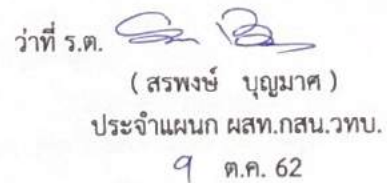 ว่าที่ ร.ต.
( สรพงษ์ บุญมาศ )
ประจำแผนก ผสท.กสน.วทบ.
9 ต.ค. 62